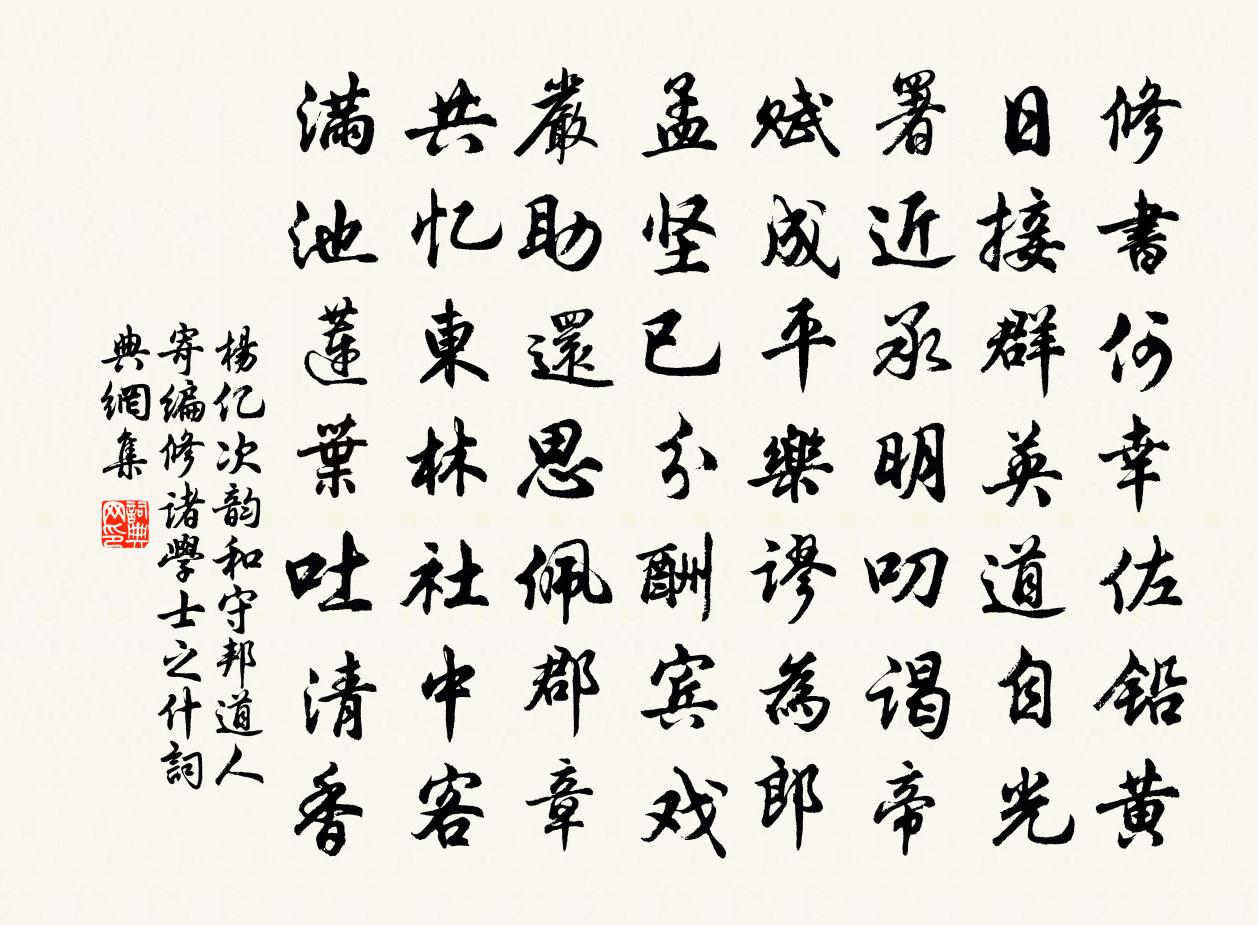 修書何幸佐铅黄
日接群英道自光
署近承明叨谒帝
赋成平樂谬為郎
孟坚已分酬宾戏
嚴助還思佩郡章
共忆東林社中客
满池蓮葉吐清香
楊亿次韵和守邦道人
寄编修诸學士之什詞
典網集
詞典网印